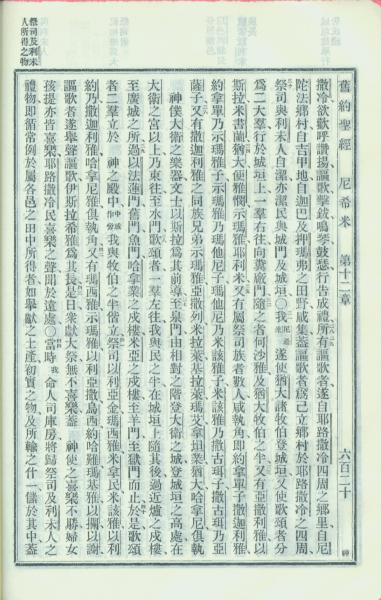 舊約聖經 尼希米 第十二章 六百二十 神
撒冷欲歡呼讚揚謳歌擊鈸鳴琴鼓瑟行告成禮所有謳歌者遂自耶路撒冷四周之鄉里自尼
陀法鄉村自吉甲地自迦巴及押瑪弗之田野咸集蓋謳歌者爲己立鄉村於耶路撒冷之四周
祭司與利未人自潔亦潔民與城門及城垣○我遂使猶大諸牧伯登城垣又使歌頌者分
爲二大羣行於城垣上一羣右往向糞廠門隨之者何沙雅及猶大牧伯之半又有亞薩利雅以
斯拉米書蘭猶大便雅憫示瑪雅耶利米又有屬祭司族者數人咸執角即約拿單子撒迦利雅
約拿單乃示瑪雅子示瑪雅乃瑪他尼子瑪他尼乃米該雅子米該雅乃撒古珥子撒古珥乃亞
薩子又有撒迦利雅之同族兄弟示瑪雅亞撒列米拉萊基拉萊瑪艾拿坦業猶大哈拿尼俱執
神僕大衛之樂器文士以斯拉爲其前導至泉門由相對之階登大衛之城登城垣之高處在
大衛之宮以上乃東往至水門歌頌者一羣左往我與民之半在城垣上隨其後過近爐之戍樓
至廣城之所過以法蓮門舊門魚門哈拿業之戍樓米亞之戍樓至羊門至獄門而止於是歌頌
者二羣立於 神之殿中我與牧伯之半偕立祭司以利亞金瑪西雅米拿民米該雅以利
約乃撒迦利雅哈拿尼雅俱執角又有瑪西雅示瑪雅以利亞撒烏西約哈難瑪基雅以攔以謝
謳歌者遂舉聲謳歌伊斯拉希雅爲其長是日衆獻大祭無不喜樂蓋 神使之喜樂不勝婦女
孩提亦皆喜樂耶路撒冷民喜樂之聲聞於遠處○當時我命人司庫房將歸祭司及利未人之
禮物即循常例於屬各邑之田中所得者如舉獻之土產初實之物及所輸之什一儲於其中蓋
祭司及利未
人所得之物